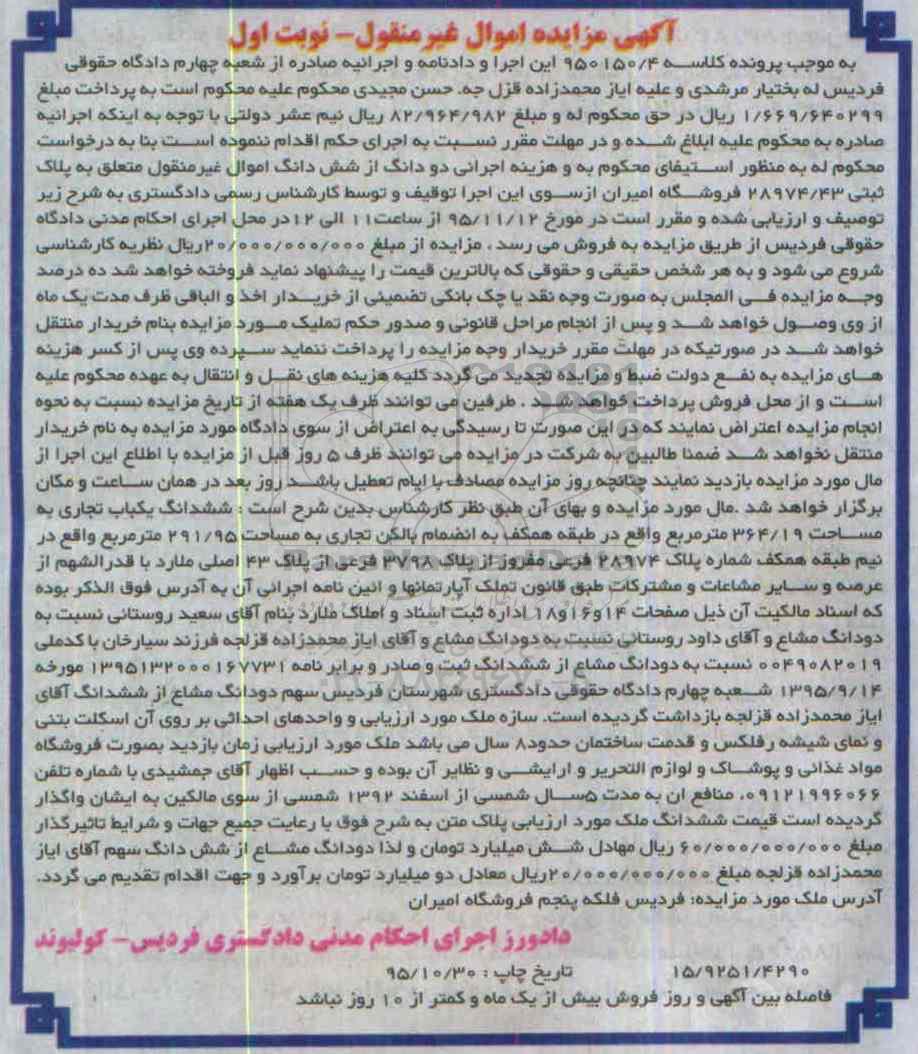 آگهی مزایده اموال غیرمنقول- نوبت اول
به موجب پرونده کلاسه ۹۵۰۱۵۰/۴ این اجرا و دادنامه و اجرائیه صادره از شعبه چهارم دادگاه حقوقی
فردیس له بختیار مرشدی و علیه ایاز محمدزاده قزل جه. حسن مجیدی محکوم علیه محکوم است به پرداخت مبلغ
۱/۶۶۹/۶۴۰۲۹۹ ریال در حق محکوم له و مبلغ ۸۲/۹۶۴/۹۸۲ ریال نیم عشر دولتی با توجه به اینکه اجرائیه
صادره به محکوم علیه ابلاغ شده و در مهلت مقرر نسبت به اجرای حکم اقدام ننموده است بنا به درخواست
محکوم له به منظور استیفای محکوم به و هزینه اجرائی دو دانگ از شش دانگ اموال غیرمنقول متعلق به پلاک
ثبتی ۲۸۹۷۴/۴۳ فروشگاه امیران ازسوی این اجرا توقیف و توسط کارشناس رسمی دادگستری به شرح زیر
توصیف و ارزیابی شده و مقرر است در مورخ ۹۵/۱۱/۱۲ از ساعت۱۱ الی ۱۲در محل اجرای احکام مدنی دادگاه
حقوقی فردیس از طریق مزایده به فروش می رسد ، مزایده از مبلغ ۲۰/۰۰۰/۰۰۰/۰۰۰ریال نظریه کارشناسی
شروع می شود و به هر شخص حقیقی و حقوقی که بالاترین قیمت را پیشنهاد نماید فروخته خواهد شد ده درصد
وجه مزایده فی المجلس به صورت وجه نقد یا چک بانکی تضمینی از خریدار اخذ و الباقی ظرف مدت یک ماه
از وی وصول خواهد شد و پس از انجام مراحل قانونی و صدور حکم تملیک مورد مزایده بنام خریدار منتقل
خواهد شد در صورتیکه در مهلت مقرر خریدار وجه مزایده را پرداخت ننماید سپرده وی پس از کسر هزینه
های مزایده به نفع دولت ضبط و مزایده تجدید می گردد کلیه هزینه های نقل و انتقال به عهده محکوم علیه
است و از محل فروش پرداخت خواهد شد . طرفین می توانند ظرف یک هفته از تاریخ مزایده نسبت به نحوه
انجام مزایده اعتراض نمایند که در این صورت تا رسیدگی به اعتراض از سوی دادگاه مورد مزایده به نام خریدار
منتقل نخواهد شد ضمنا طالبین به شرکت در مزایده می توانند ظرف ۵ روز قبل از مزایده با اطلاع این اجرا از
مال مورد مزایده بازدید نمایند چنانچه روز مزایده مصادف با ایام تعطیل باشد روز بعد در همان ساعت و مکان
برگزار خواهد شد .مال مورد مزایده و بهای آن طبق نظر کارشناس بدین شرح است : ششدانگ یکباب تجاری به
مساحت ۳۶۴/۱۹ مترمربع واقع در طبقه همکف به انضمام بالکن تجاری به مساحت ۲۹۱/۹۵ مترمربع واقع در
نیم طبقه همکف شماره پلاک ۲۸۹۷۴ فرعی مفروز از پلاک ۳۷۹۸ فرعی از پلاک ۴۳ اصلی ملارد با قدرالشهم از
عرصه و سایر مشاعات و مشترکات طبق قانون تملک آپارتمانها و آئین نامه اجرائی آن به آدرس فوق الذکر بوده
که اسناد مالکیت آن ذیل صفحات ۱۴و۱۶و۱۸ اداره ثبت اسناد و املاک ملارد بنام آقای سعید روستائی نسبت به
دودانگ مشاع و آقای داود روستائی نسبت به دودانگ مشاع و آقای ایاز محمدزاده قزلجه فرزند سیارخان با کدملی
۰۰۴۹۰۸۲۰۱۹ نسبت به دودانگ مشاع از ششدانگ ثبت و صادر و برابر نامه ۱۳۹۵۱۳۲۰۰۰۱۶۷۷۳۱ مورخه
۱۳۹۵/۹/۱۴ شعبه چهارم دادگاه حقوقی دادگستری شهرستان فردیس سهم دودانگ مشاع از ششدانگ آقای
ایاز محمدزاده قزلجه بازداشت گردیده است. سازه ملک مورد ارزیابی و واحدهای احداثی بر روی آن اسکلت بتنی
و نمای شیشه رفلکس و قدمت ساختمان حدود۸ سال می باشد ملک مورد ارزیابی زمان بازدید بصورت فروشگاه
مواد غذائی و پوشاک و لوازم التحریر و آرایشی و نظایر آن بوده و حسب اظهار آقای جمشیدی با شماره تلفن
۰۹۱۲۱۹۹۶۰۶۶، منافع ان به مدت ۵سال شمسی از اسفند ۱۳۹۲ شمسی از سوی مالکین به ایشان واگذار
گردیده است قیمت ششدانگ ملک مورد ارزیابی پلاک متن به شرح فوق با رعایت جمیع جهات و شرایط تاثیرگذار
مبلغ ۶۰/۰۰۰/۰۰۰/۰۰۰ ریال مهادل شش میلیارد تومان و لذا دودانگ مشاع از شش دانگ سهم آقای ایاز
محمدزاده قزلجه مبلغ ۲۰/۰۰۰/۰۰۰/۰۰۰ریال معادل دو میلیارد تومان برآورد و جهت اقدام تقدیم می گردد.
آدرس ملک مورد مزایده: فردیس فلکه پنجم فروشگاه امیران
دادورز اجرای احکام مدنی دادگستری فردیس- کولیوند
۱۵/۹۲۵۱/۴۲۹۰ تاریخ چاپ : ۹۵/۱۰/۳۰
فاصله بین آگهی و روز فروش بیش از یک ماه و کمتر از ۱۰ روز نباشد